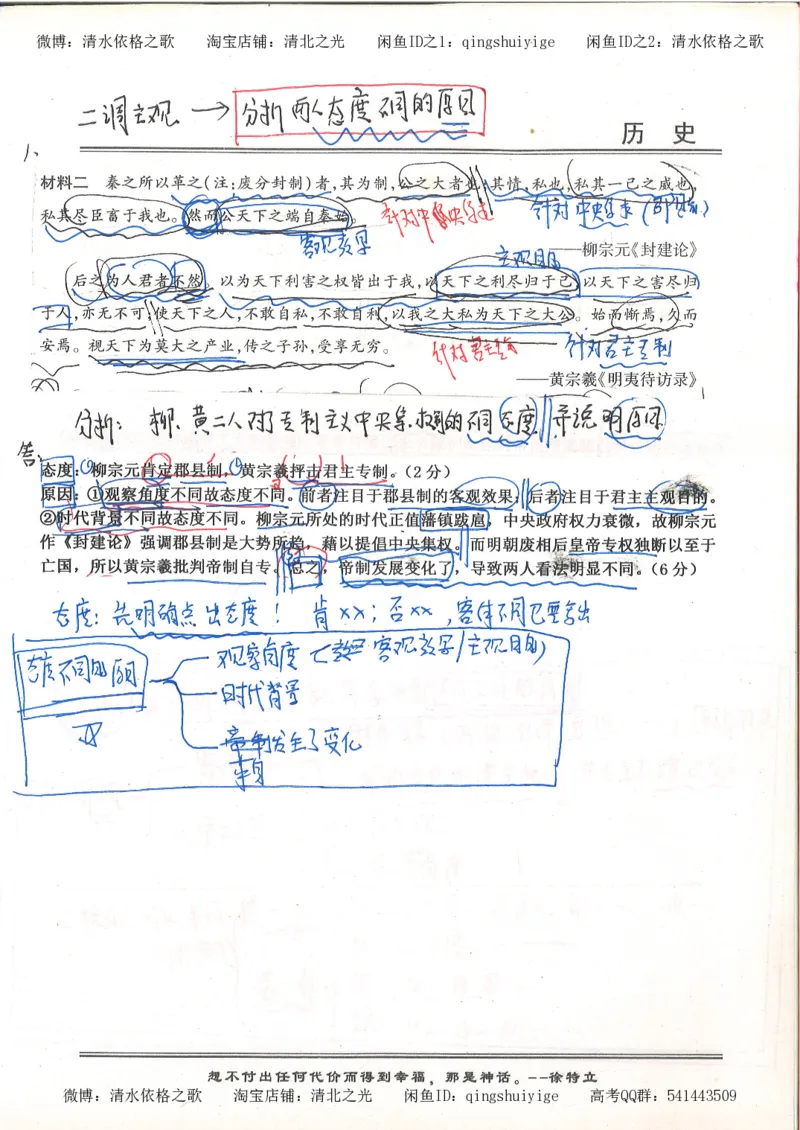 微博：清水依格之歌 淘宝店铺：清北之光 闲鱼ID之1：qingshuiyige 闲鱼ID之2：清水依格之歌
二调主观 → 分析两人态度不同的原因
历 史
1、
材料二 秦之所以革之(注:废分封制)者,其为制,公之大者也;其情,私也,私其一己之威也,
私其尽臣畜于我也。然而公天下之端自秦始。
针对中央集走
针对中央集走
客观效果
——柳宗元《封建论》
主观目的
后之为人君者不然。以为天下利害之权皆出于我,以天下之利尽归于己,以天下之害尽归
于人,亦无不可;使天下之人,不敢自私,不敢自利,以我之大私为天下之大公。始而惭焉,久而
安焉。视天下为莫大之产业,传之子孙,受享无穷。
针对君主专制
针对君主专制
——黄宗羲《明夷待访录》
分析：柳、黄二人对专制主义中央集权制的不同态度并说明原因
答：
态度：①柳宗元肯定郡县制,②黄宗羲抨击君主专制。(2分)
原因：①观察角度不同故态度不同。前者注目于郡县制的客观效果；后者注目于君主主观目的。
②时代背景不同故态度不同。柳宗元所处的时代正值藩镇跋扈，中央政府权力衰微，故柳宗元
作《封建论》强调郡县制是大势所趋，藉以提倡中央集权。而明朝废相后皇帝专权独断以至于
亡国，所以黄宗羲批判帝制自专。总之，帝制发展变化了，导致两人看法明显不同。(6分)
态度：先明确点出态度！ 肯xx；否xx，客体不同已要写出
态度不同的原因
观察角度 (客观效果/主观目的)
时代背景
帝制发生了变化
想不付出任何代价而得到幸福，那是神话。--徐特立
微博：清水依格之歌 淘宝店铺：清北之光 闲鱼ID：qingshuiyige 高考QQ群：541443509